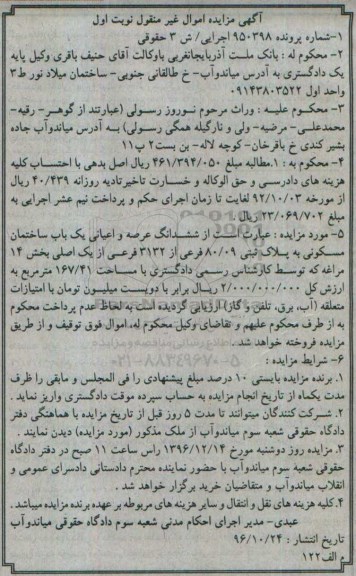 آگهی مزایده اموال غیر منقول نوبت اول
۱-شماره پرونده ۹۵۰۳۹۸ اجرایی/ ش ۳ حقوقی
۲- محکوم له : بانک ملت آذربایجانغربی باوکالت آقای حنیف باقری وکیل پایه
یک دادگستری به آدرس میاندوآب- خ طالقانی جنوبی- ساختمان میلاد نور ط۳
واحد اول ۰۹۱۴۳۸۰۳۵۲۲
۳- محکوم علیه : وراث مرحوم نوروز رسولی (عبارتند از گوهر- رقیه-
محمدعلی- مرضیه- ولی و نارگیله همگی رسولی) به آدرس میاندوآب جاده
بشیر کندی خ باقرخان- کوچه لاله- بن بست۲ پ۱۱
۴- محکوم به : ۱.مطالبه مبلغ ۴۶۱/۳۹۴/۰۵۰ ریال اصل بدهی با احتساب کلیه
هزینه های دادرسی و حق الوکاله و خسارت تاخیرتادیه روزانه ۴۰/۴۳۹ ریال
از مورخه ۹۲/۱۰/۰۳ لغایت تا زمان اجرای حکم و پرداخت نیم عشر اجرایی به
مبلغ ۲۳/۰۶۹/۷۰۲ ریال
۵- مورد مزایده : عبارت است از ششدانگ عرصه و اعیانی یک باب ساختمان
مسکونی به پلاک ثبتی ۸۰/۰۹ فرعی از ۳۱۳۲ فرعی از یک اصلی بخش ۱۴
مراغه که توسط کارشناس رسمی دادگستری با مساحت ۱۶۷/۴۱ مترمربع به
ارزش کل ۲/۰۰۰/۰۰۰/۰۰۰ ریال برابر با دویست میلیون تومان با امتیازات
متعلقه (آب، برق، تلفن و گاز) ارزیابی گردیده است به لحاظ عدم پرداخت محکوم
به از طرف محکوم علیهم و تقاضای وکیل محکوم له، اموال فوق توقیف و از طریق
مزایده فروخته خواهد شد.
۶- شرایط مزایده :
۱. برنده مزایده بایستی ۱۰ درصد مبلغ پیشنهادی را فی المجلس و مابقی را ظرف
مدت یکماه از تاریخ انجام مزایده به حساب سپرده موقت دادگستری واریز نماید .
۲. شرکت کنندگان میتوانند تا مدت ۵ روز قبل از تاریخ مزایده با هماهنگی دفتر
دادگاه حقوقی شعبه سوم میاندوآب از ملک مذکور (مورد مزایده) دیدن نمایند .
۳. مزایده روز دوشنبه مورخ ۱۳۹۶/۱۲/۱۴ راس ساعت ۱۱ صبح در دفتر دادگاه
حقوقی شعبه سوم میاندوآب با حضور نماینده محترم دادستانی دادسرای عمومی و
انقلاب میاندوآب و متقاضیان خرید برگزار خواهد شد .
۴.کلیه هزینه های نقل و انتقال و سایر هزینه های مربوطه بر عهده برنده مزایده میباشد .
عبدی- مدیر اجرای احکام مدنی شعبه سوم دادگاه حقوقی میاندوآب
تاریخ انتشار : ۹۶/۱۰/۲۴
م الف۱۲۲